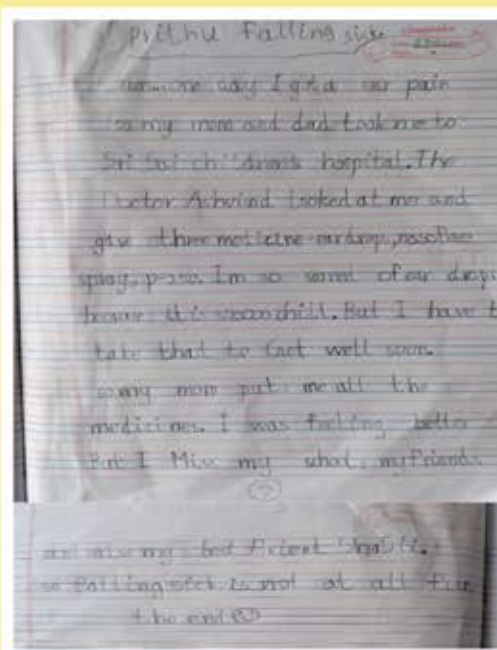 Prithu Falling sick
one day I got a ear pain
so my mom and dad took me to
Sri Sai childrens hospital. The
Doctor Ashwind looked at me and
give three medicine eardrop,
spray, Im so of ear drops
because it is chill. But I have t
take that to Get well soon.
so my mom put me all the
medicines. I was feeling better
But I Miss my my friends
and also my best friend
so Falling sick is not at all fun
the end